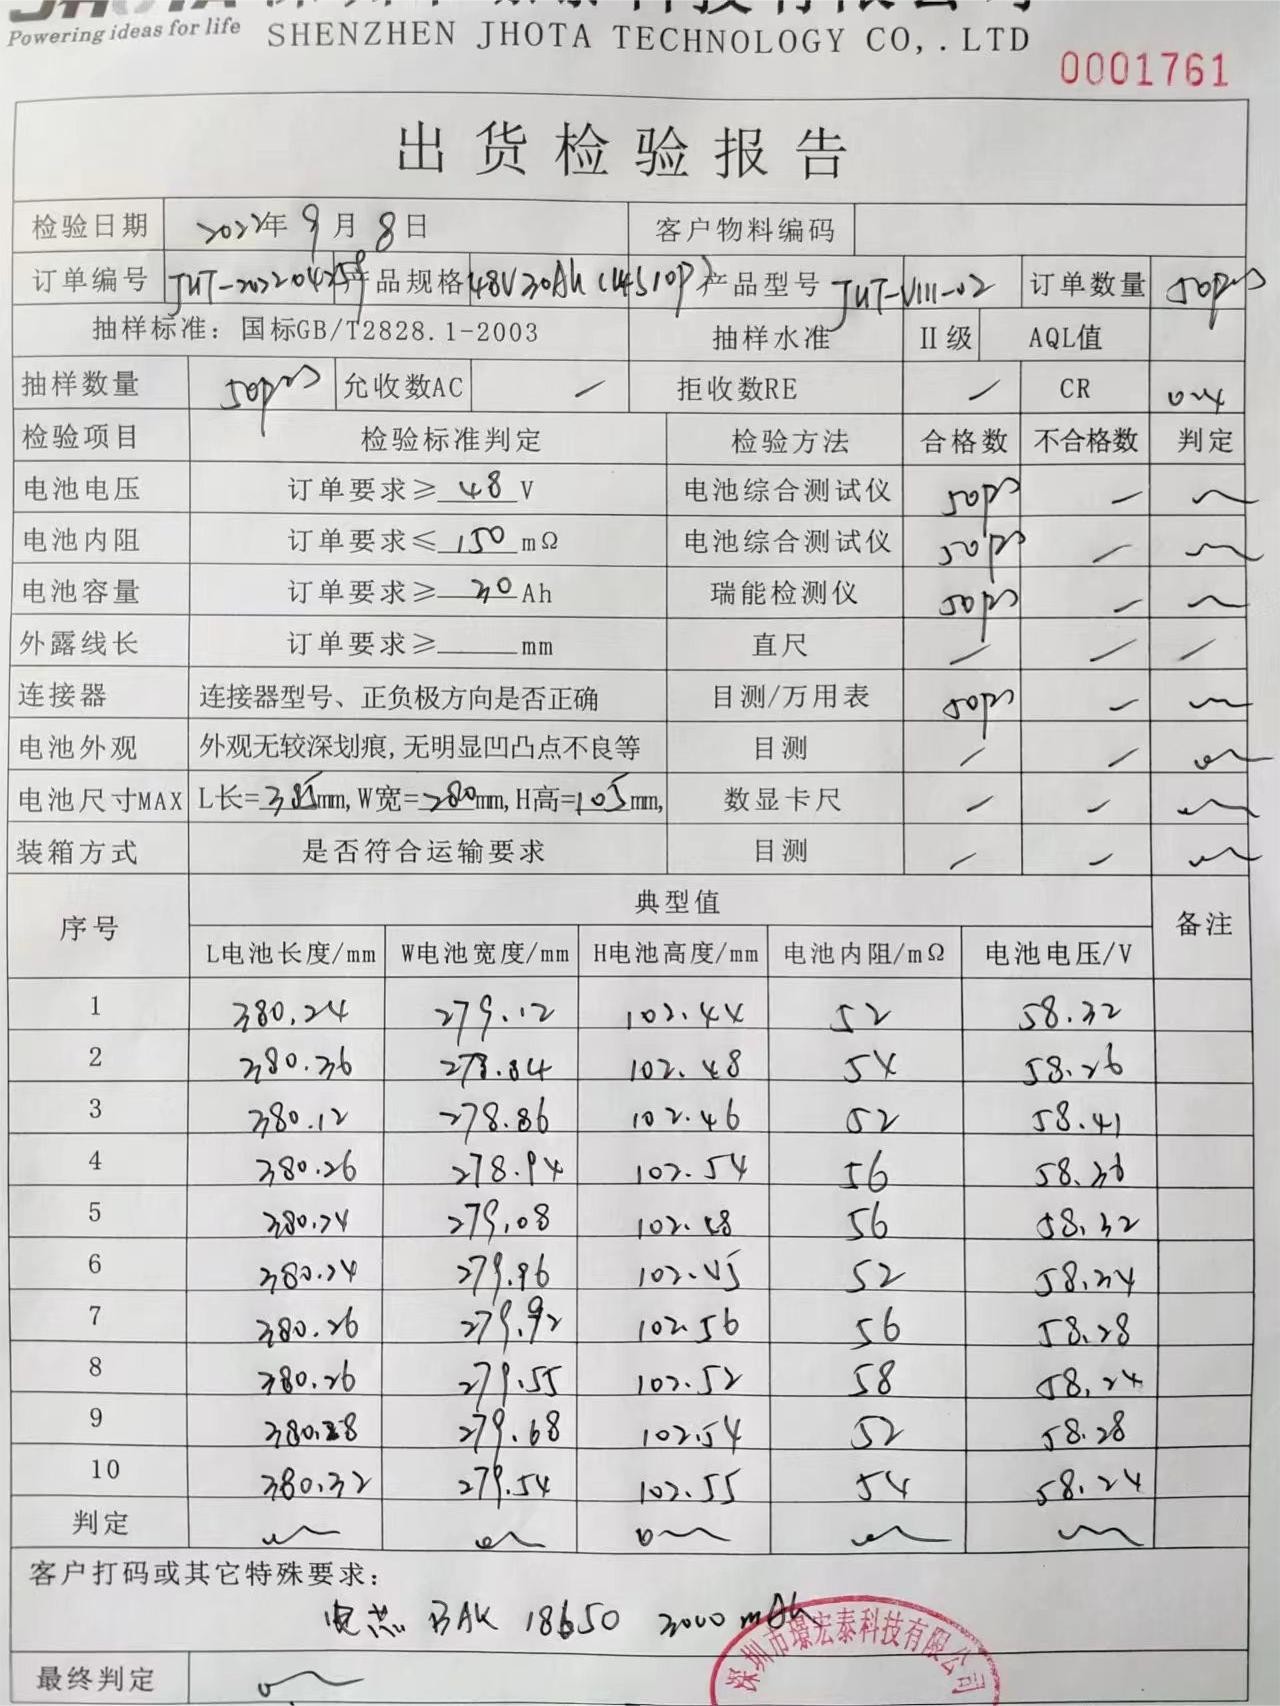 Powering ideas for life
SHENZHEN JHOTA TECHNOLOGY CO,.LTD
0001761
出货检验报告
检验日期 2022年9月8日 客户物料编码
订单编号 产品规格 48V30Ah(14S10P) 产品型号 JHT-VIII-02 订单数量 50pcs
抽样标准：国标GB/T2828.1-2003 抽样水准 II级 AQL值
抽样数量 50pcs 允收数AC / 拒收数RE / CR
检验项目 检验标准判定 检验方法 合格数 不合格数 判定
电池电压 订单要求≥48V 电池综合测试仪 50pcs
电池内阻 订单要求≤150mΩ 电池综合测试仪 50pcs /
电池容量 订单要求≥30Ah 瑞能检测仪 50pcs
外露线长 订单要求≥____mm 直尺 / / /
连接器 连接器型号、正负极方向是否正确 目测/万用表 50pcs
电池外观 外观无较深划痕,无明显凹凸点不良等 目测 / /
电池尺寸MAX L长=385mm,W宽=280mm,H高=105mm, 数显卡尺
装箱方式 是否符合运输要求 目测
序号 典型值 备注
L电池长度/mm W电池宽度/mm H电池高度/mm 电池内阻/mΩ 电池电压/V
1 380.24 279.12 102.44 52 58.32
2 380.36 278.84 102.48 54 58.26
3 380.12 278.86 102.46 52 58.41
4 380.26 278.94 102.54 56 58.36
5 380.24 279.08 102.48 56 58.32
6 380.24 279.96 102.45 52 58.34
7 380.26 279.92 102.56 56 58.28
8 380.26 279.55 102.52 58 58.24
9 279.68 102.54 52 58.28
10 380.32 279.54 102.55 54 58.24
判定
客户打码或其它特殊要求：
电芯 BAK 18650 3000mAh
深圳市璟宏泰科技有限公司
最终判定